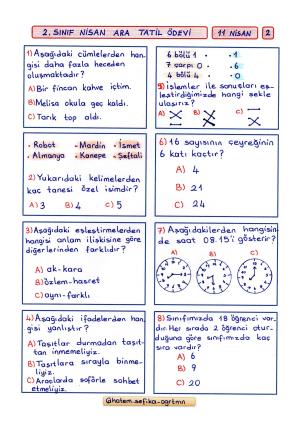 2. SINIF NİSAN ARA TATİL ÖDEVİ
11 NİSAN
2
1) Aşağıdaki cümlelerden han-
gisi daha fazla heceden
oluşmaktadır?
A) Bir fincan kahve içtim.
B) Melisa okula geç kaldı.
C) Tarık top aldı.
• Robot • Mardin • İsmet
• Almanya • Kanepe • Şeftali
2) Yukarıdaki kelimelerden
kaç tanesi özel isimdir?
A) 3 B) 4 C) 5
3) Aşağıdaki eşleştirmelerden
hangisi anlam ilişkisine göre
diğerlerinden farklıdır?
A) ak-kara
B) özlem-hasret
C) aynı-farklı
4) Aşağıdaki ifadelerden han-
gisi yanlıştır?
A) Taşıtlar durmadan taşıt-
tan inmemeliyiz.
B) Taşıtlara sırayla binme-
liyiz.
C) Araçlarda şoförle sohbet
etmeliyiz.
6 bölü 1 • • 1
7 çarpı 0 • • 6
4 bölü 4 • • 0
5) işlemler ile sonuçları eş-
leştirdiğimizde hangi şekle
ulaşırız?
A) B) C)
6) 16 sayısının çeyreğinin
6 katı kaçtır?
A) 4
B) 21
C) 24
7) Aşağıdakilerden hangisin
de saat 09.15'i gösterir?
A) B) C)
8) Sınıfımızda 18 öğrenci var-
dır. Her sırada 2 öğrenci otur-
duğuna göre sınıfımızda kaç
sıra vardır?
A) 6
B) 9
C) 20
@hatem.sefika-ogrtmn